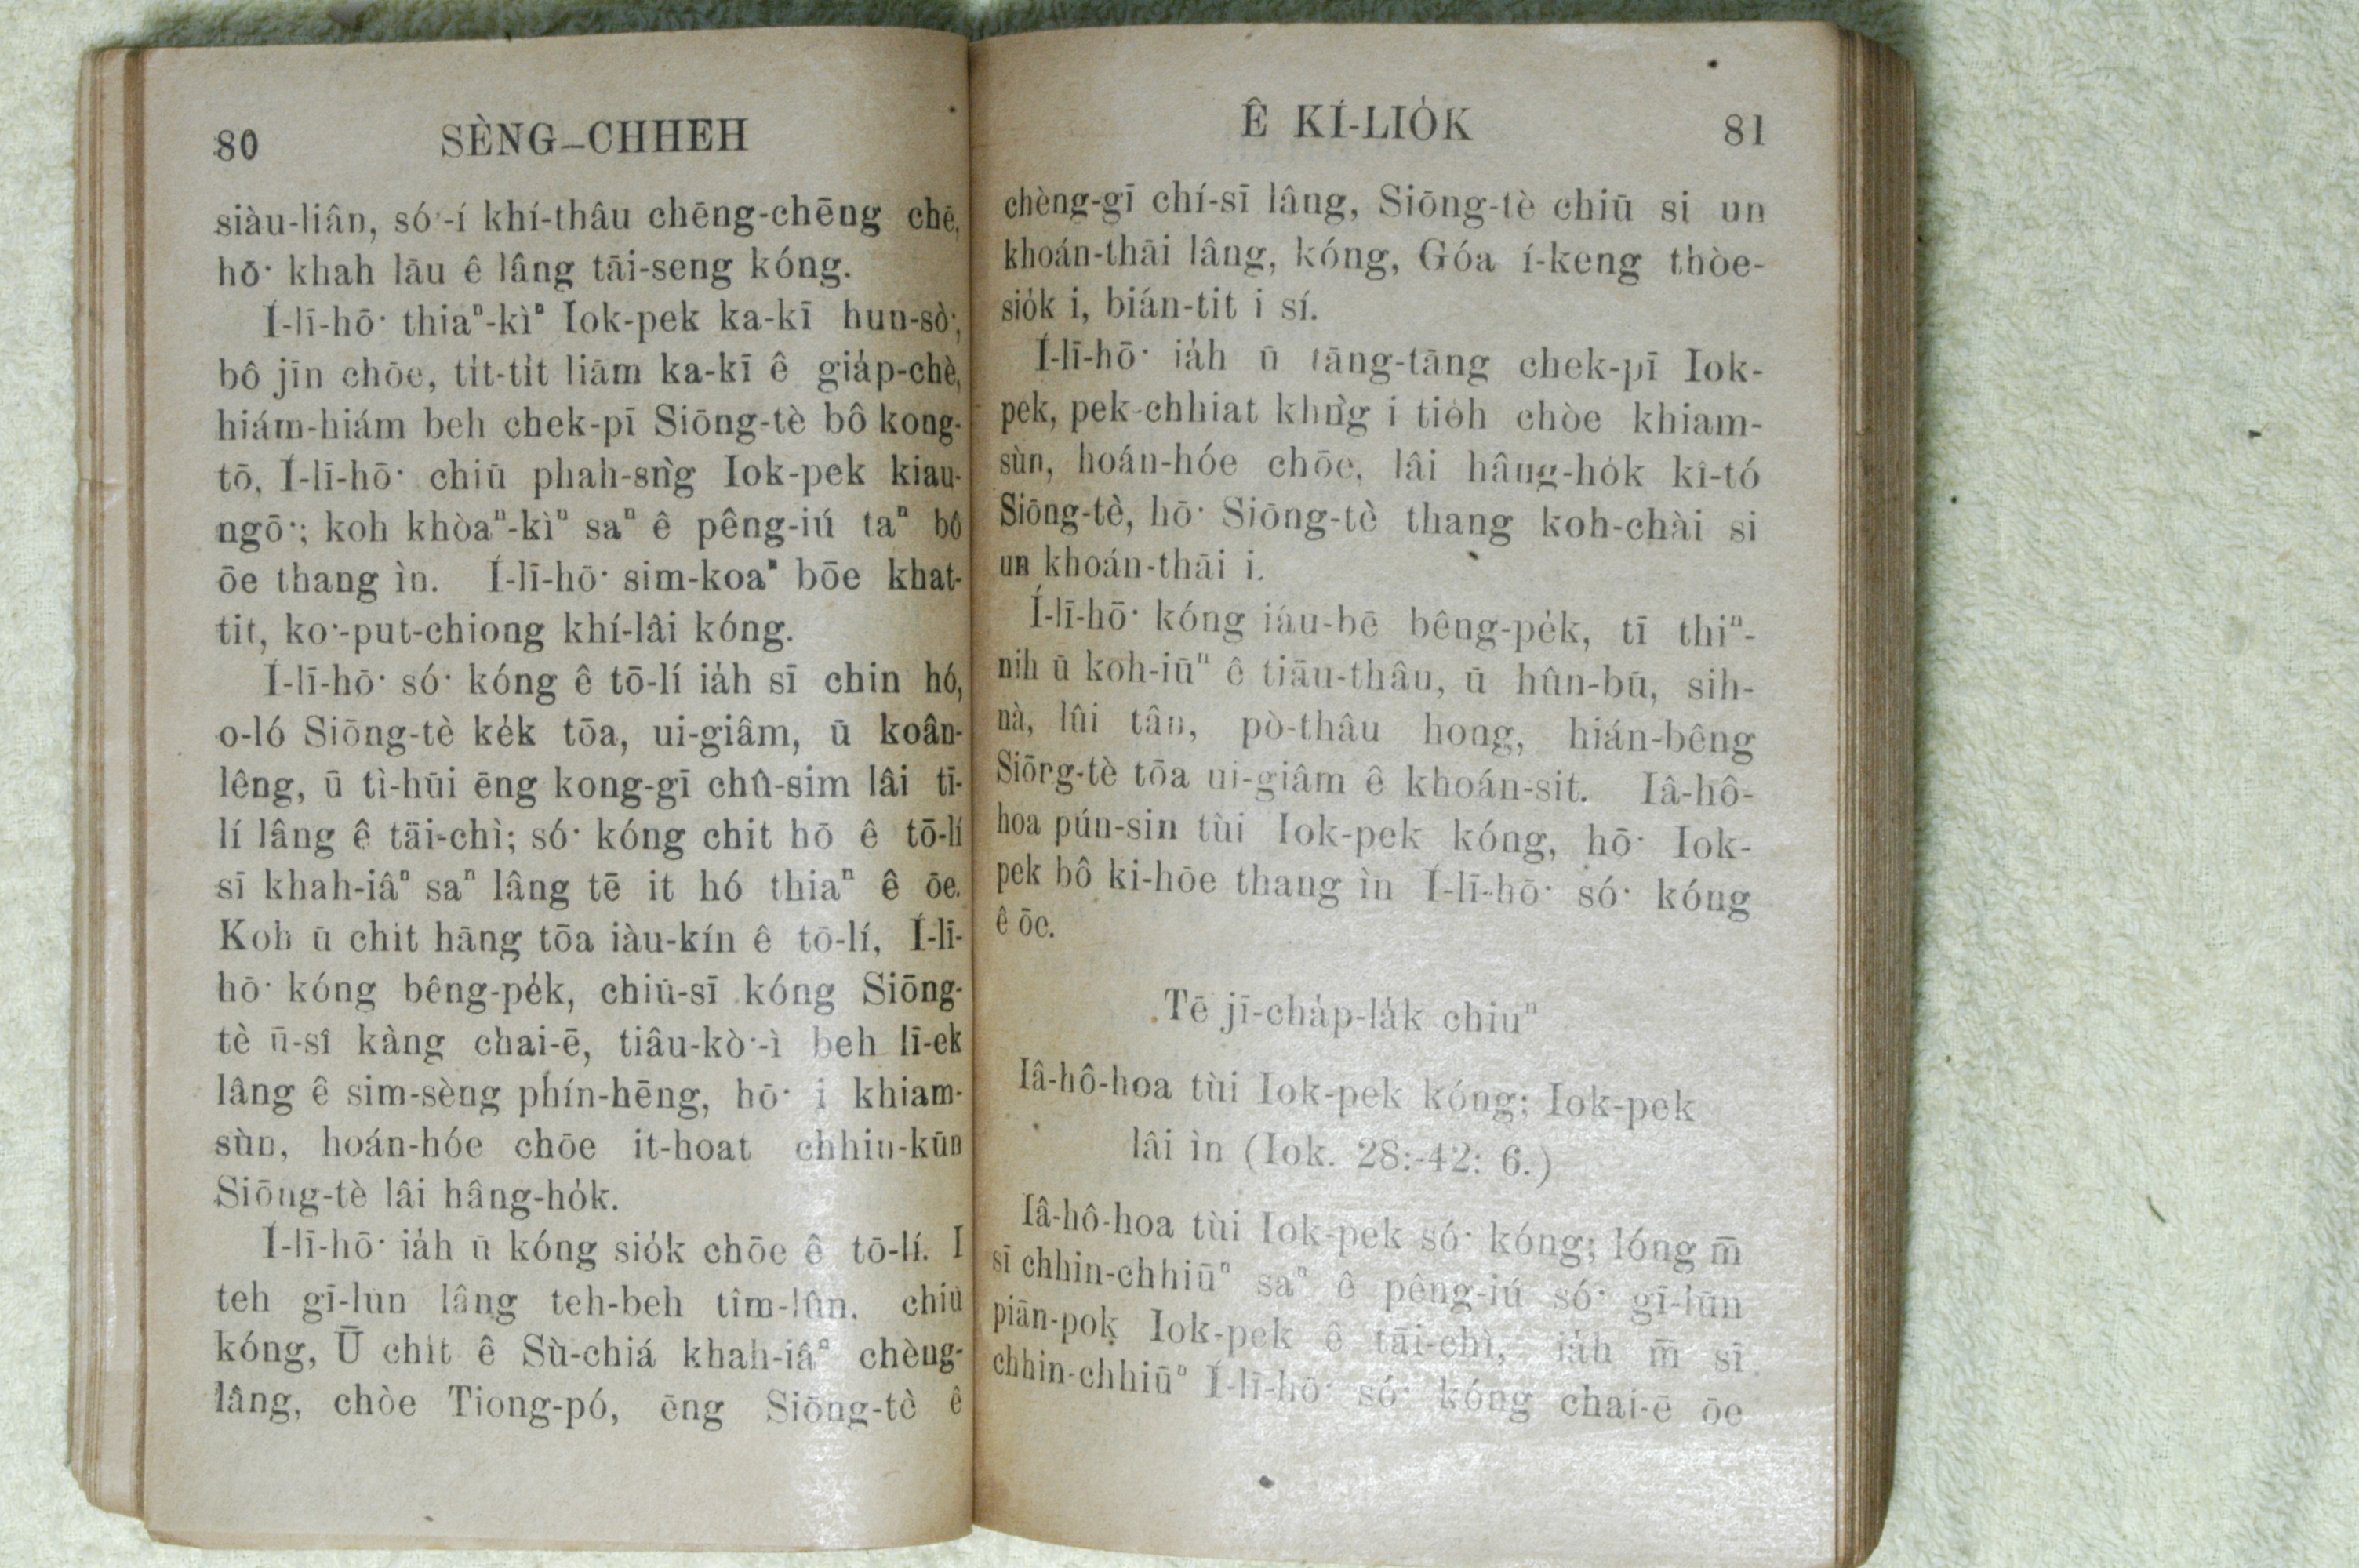 80 SÈNG-CHHEH
siàu-liân, só͘-í khí-thâu chēng-chēng chē,
hō͘ khah lāu ê lâng tāi-seng kóng.
Í-lī-hō͘ thiaⁿ-kìⁿ Iok-pek ka-kī hun-sò͘,
bô jīn chōe, ti̍t-ti̍t liām ka-kī ê gia̍p-chè,
hiám-hiám beh chek-pī Siōng-tè bô kong-
tō, Í-lī-hō͘ chiū phah-sǹg Iok-pek kiau-
ngō͘; koh khòaⁿ-kìⁿ saⁿ ê pêng-iú taⁿ bô
ōe thang ìn. Í-lī-hō͘ sim-koaⁿ bōe khat-
tit, ko͘-put-chiong khí-lâi kóng.
Í-lī-hō͘ só͘ kóng ê tō-lí ia̍h sī chin hó,
o-ló Siōng-tè ke̍k tōa, ui-giâm, ū koân-
lêng, ū tì-hūi ēng kong-gī chû-sim lâi tī-
lí lâng ê tāi-chì; só͘ kóng chit hō ê tō-lí
sī khah-iâⁿ saⁿ lâng tē it hó thiaⁿ ê ōe.
Koh ū chit hāng tōa iàu-kín ê tō-lí, Í-lī-
hō͘ kóng bêng-pe̍k, chiū-sī kóng Siōng-
tè ū-sî kàng chai-ē, tiâu-kò͘-ì beh lī-ek
lâng ê sim-sèng phín-hēng, hō͘ i khiam-
sùn, hoán-hóe chōe it-hoat chhin-kūn
Siōng-tè lâi hâng-ho̍k.
Í-lī-hō͘ ia̍h ū kóng sio̍k chōe ê tō-lí. I
teh gī-lūn lâng teh-beh tîm-lûn, chiū
kóng, Ū chit ê Sù-chiá khah-iâⁿ chèng-
lâng, chòe Tiong-pó, ēng Siōng-tè ê
Ê KÍ-LIO̍K 81
chèng-gī chí-sī lâng, Siōng-tè chiū si un
khoán-thāi lâng, kóng, Góa í-keng thòe-
sio̍k i, bián-tit i sí.
Í-lī-hō͘ ia̍h ū tāng-tāng chek-pī Iok-
pek, pek-chhiat khǹg i tio̍h chòe khiam-
sùn, hoán-hóe chōe, lâi hâng-ho̍k kî-tó
Siōng-tè, hō͘ Siōng-tè thang koh-chài si
un khoán-thāi i.
Í-lī-hō͘ kóng iáu-bē bêng-pe̍k, tī thiⁿ-
nih ū koh-iūⁿ ê tiāu-thâu, ū hûn-bū, sih-
nà, lûi tân, pò-thâu hong, hián-bêng
Siōng-tè tōa ui-giâm ê khoán-sit. Iâ-hô-
hoa pún-sin tùi Iok-pek kóng, hō͘ Iok-
pek bô ki-hōe thang ìn Í-lī-hō͘ só͘ kóng
ê ōe.
Tē jī-cha̍p-la̍k chiuⁿ
Iâ-hô-hoa tùi Iok-pek kóng; Iok-pek
lâi ìn (Iok. 28:-42: 6.)
Iâ-hô-hoa tùi Iok-pek só͘ kóng; lóng m̄
sī chhin-chhiūⁿ saⁿ ê pêng-iú só͘ gī-lūn
piān-pok Iok-pek ê tāi-chì, ia̍h m̄ sī
chhin-chhiūⁿ Í-lī-hō͘ só͘ kóng chai-ē ōe